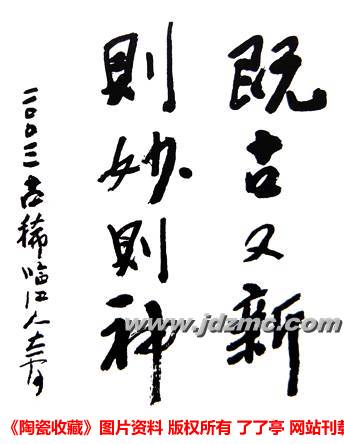 既古又新
則妙則神
二〇〇三古稀临江人
www.jdzmc.com
《陶瓷收藏》图片资料 版权所有 了了亭 网站刊载